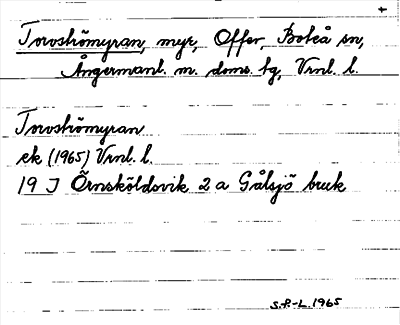 Torvströmyran, myr, Offer, Boteå sn,
Ångermanl. m. doms. tg, Vrnl. l.
Torvströmyran
ek (1965) Vrnl. l.
19 J Örnsköldsvik 2 a Gålsjö bruk
S.P.-L. 1965